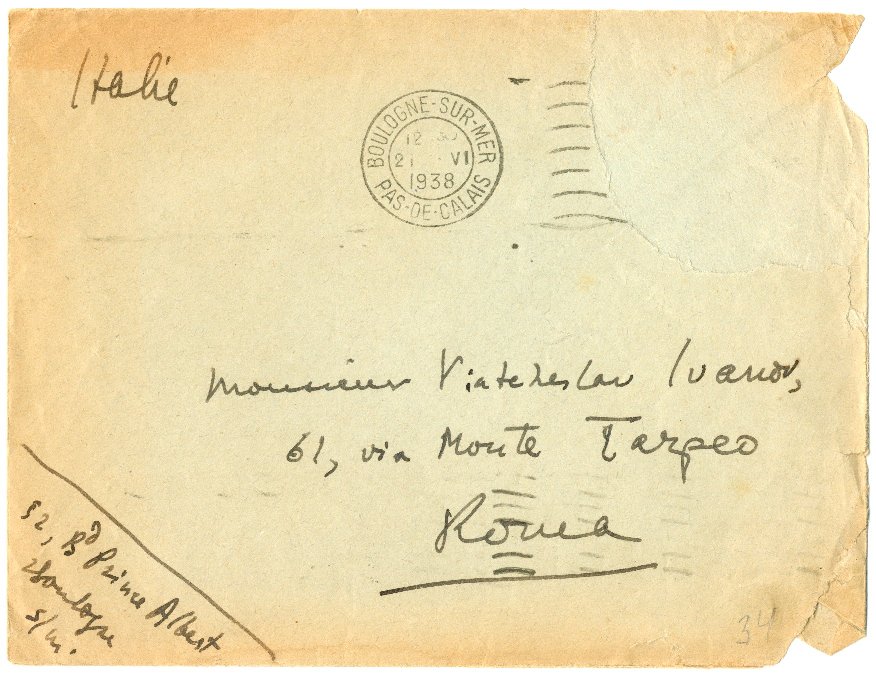 Italie
BOULOGNE-SUR-MER
12
21 VI
1938
PAS-DE-CALAIS
Monsieur Viatcheslav Ivanov,
61, via Monte Tarpeo
Roma
52, Bd Prince Albert
Boulogne
s/m.
34